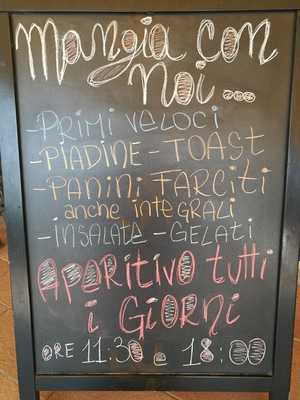 Mangia con
noi...
-PRIMI VELOCI
-PIADINE-TOAST
-PANINI FARCITI
anche integrali
-INSALATE-GELATI
APARITIVO tutti
i GIORNI
ORE 11:30 e 18:00